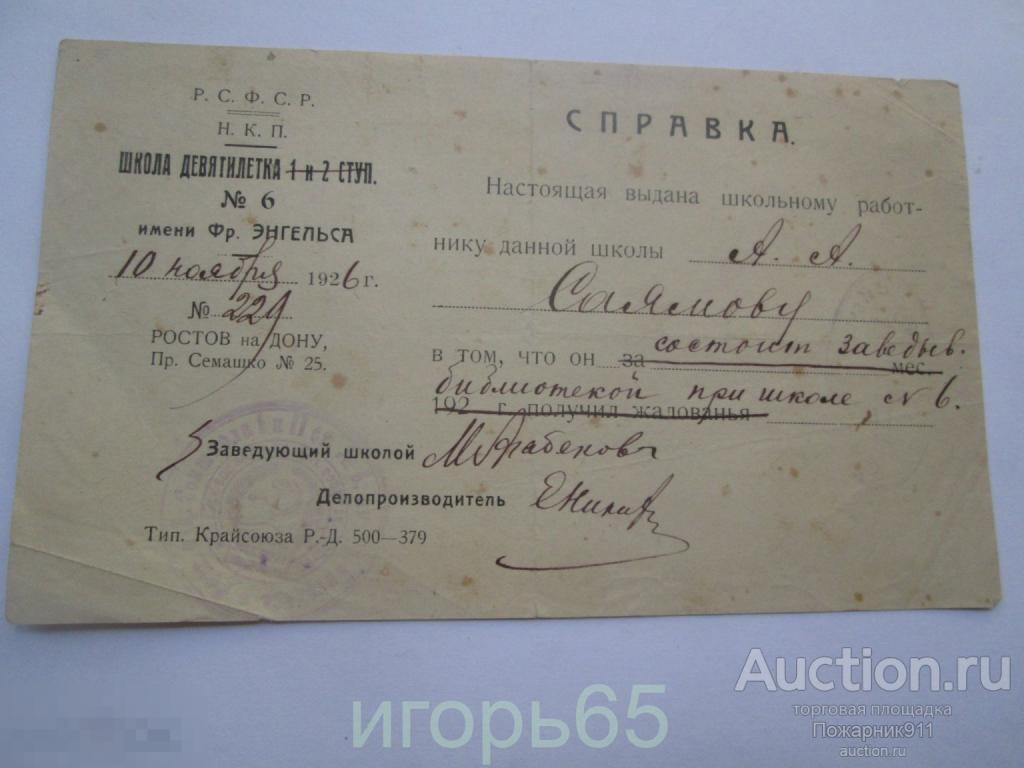 Р. С. Ф. С. Р.
Н. К. П.
ШКОЛА ДЕВЯТИЛЕТКА 1 и 2 СТУП.
№ 6
имени Фр. ЭНГЕЛЬСА
10 ноября 1926 г.
№ 229
РОСТОВ на ДОНУ,
Пр. Семашко № 25.
СПРАВКА.
Настоящая выдана школьному работ-
нику данной школы А. А.
Саямову
в том, что он за состоит заведыв. мес.
библиотекой при школе, № 6.
192 г. получил жалованья
Заведующий школой
Делопроизводитель
Тип. Крайсоюза Р.-Д. 500—379
Auction.ru
торговая площадка
Пожарник911
auction.ru
игорь65